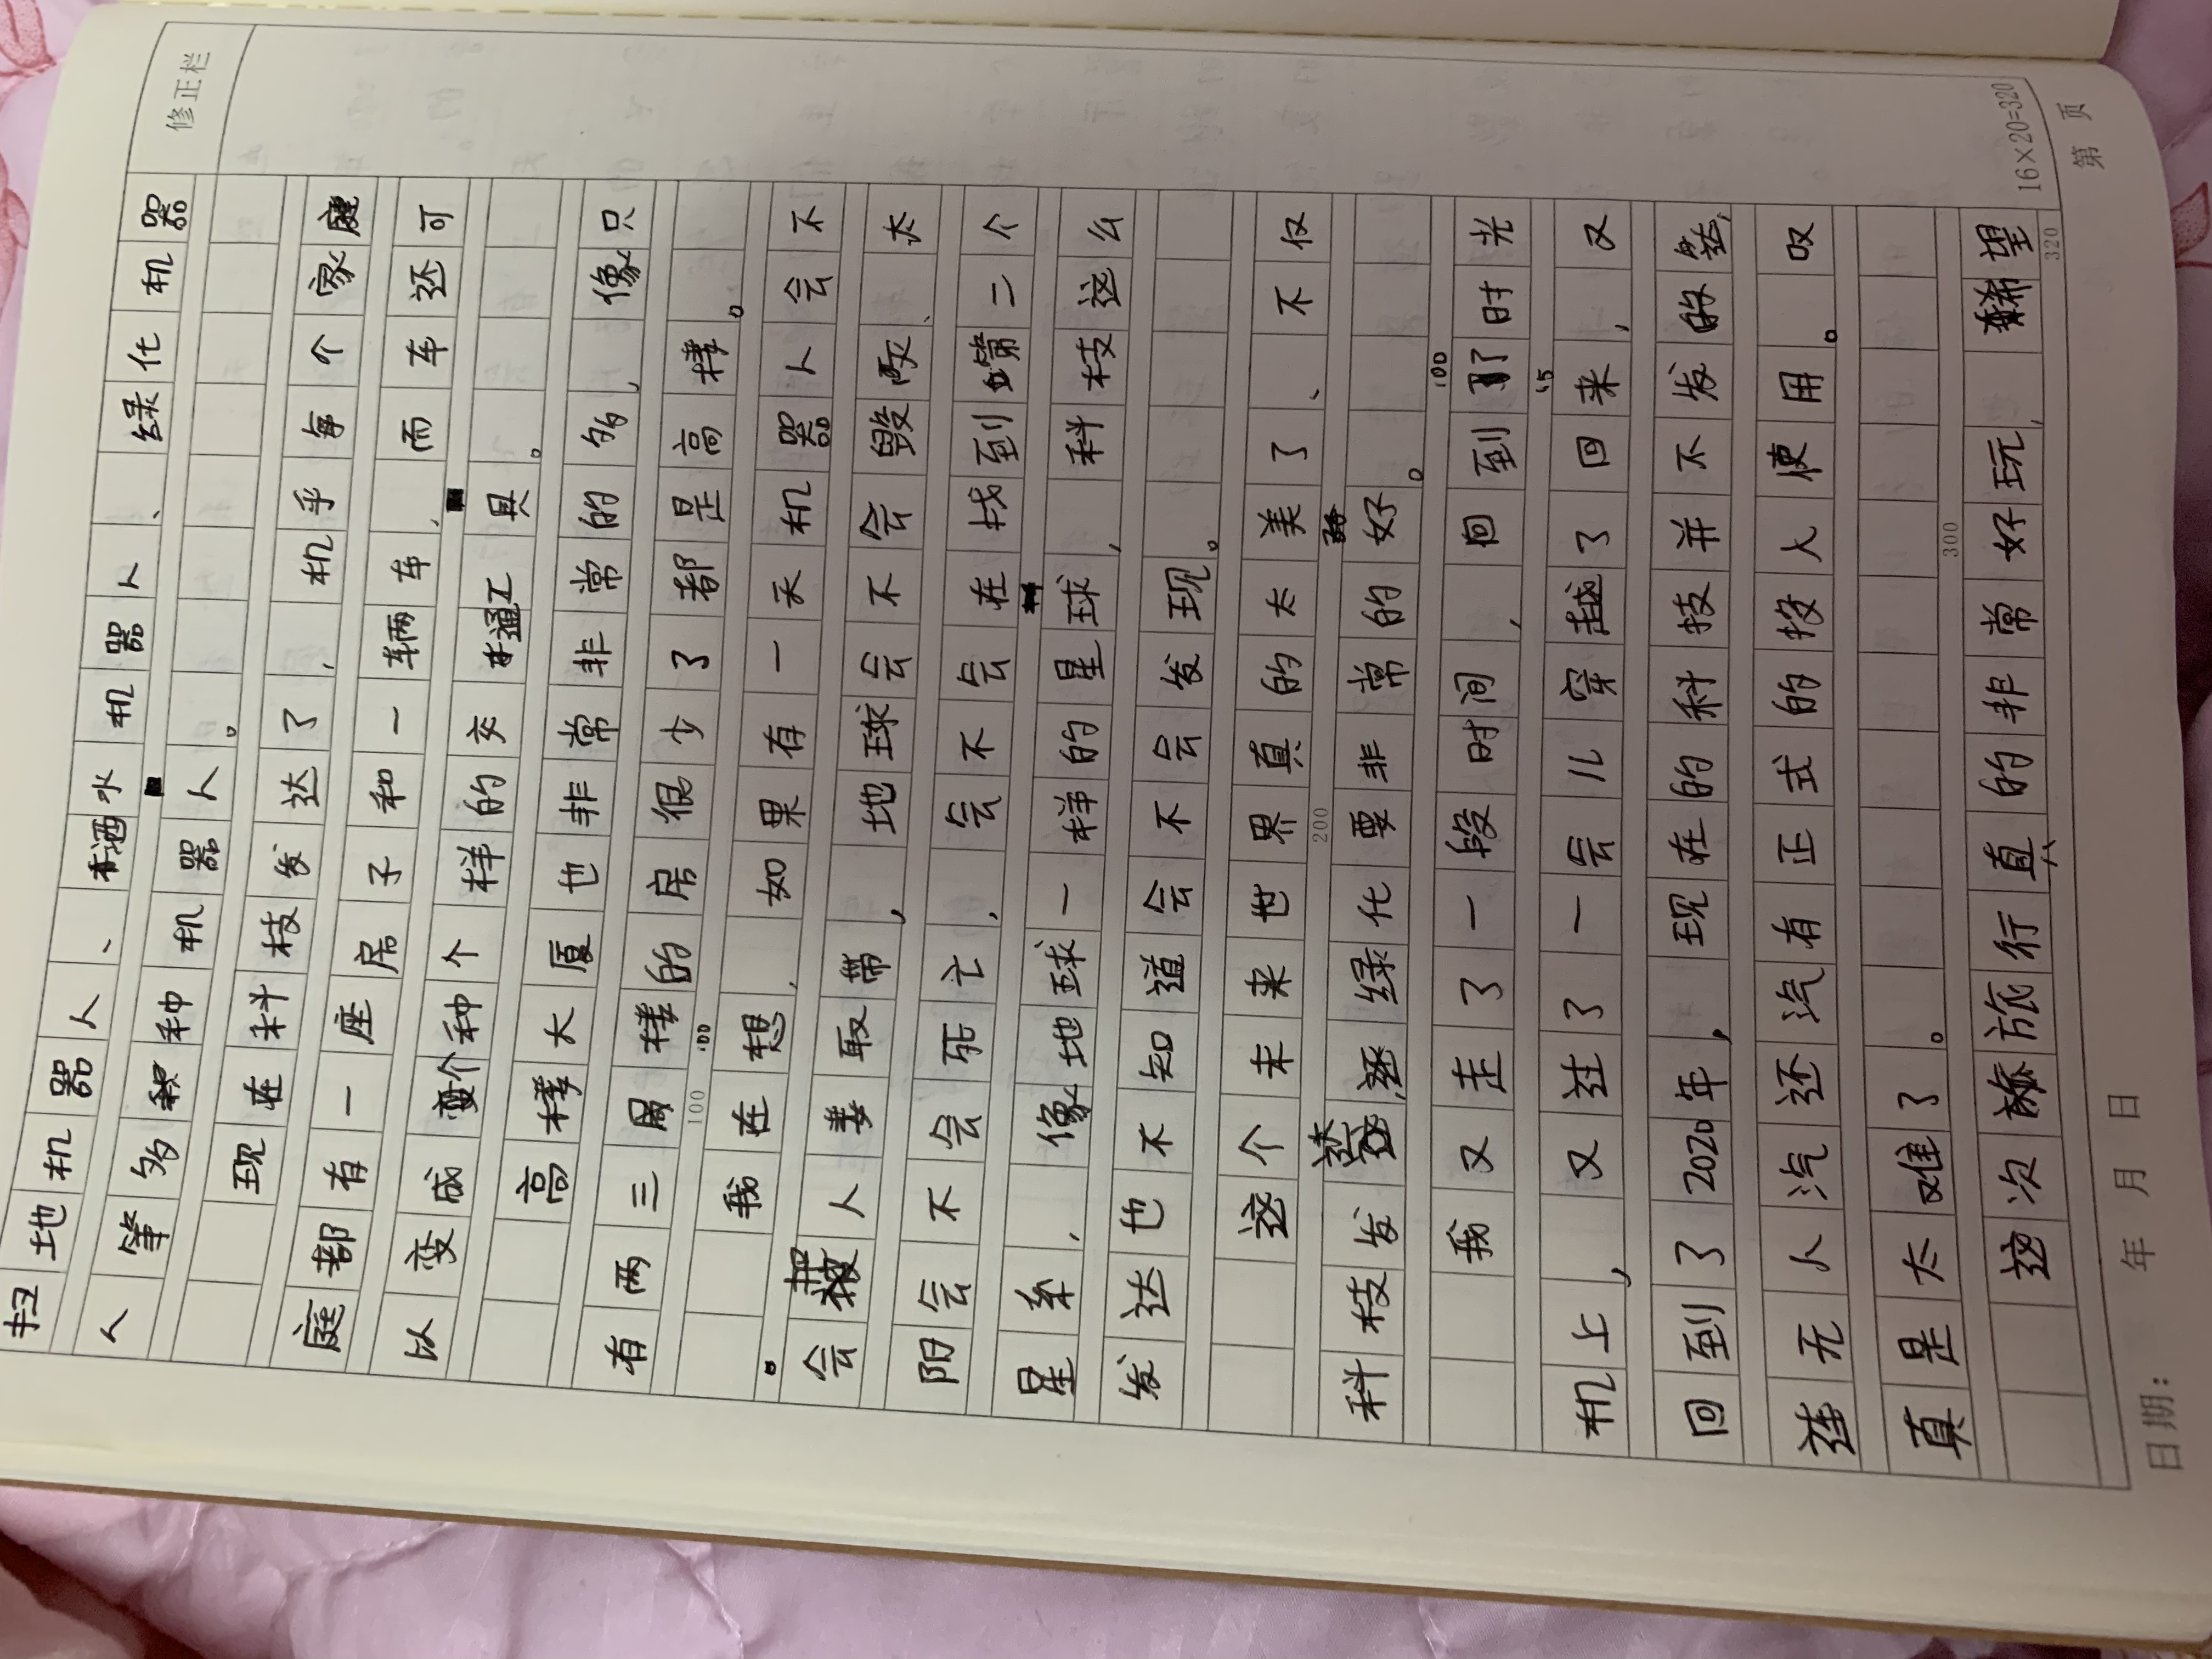 修正栏
扫地机器人、洒水机器人、绿化机器
人等多种机器人。
现在科技发达了,机乎每个家庭
庭都有一座房子和一辆车,而车还可
以变成变个种个样的交通工具。
高楼大厦也非常非常的多,像只
有两三层楼的房很少了都是高楼。
100
我在想,如果有一天机器人会不
会把人类取带,地球会不会毁灭、太
阳会不会死亡,会不会在找到第二个
星系,像地球一样的星球,科技这么
发达也不知道会不会发现。
这个未来世界真的太美了、不仅
200
科技发达,还绿化要非常的好。
我又走了一段时间,回到了时光
机上,又过了一会儿穿越了回来,又
回到了2020年,现在的科技并不发的然,
连无人汽还汽有正式的投入使用。叹
真是太难了。
300
这次旅行真的非常好玩,希望
320
16×20=320
日期: 年 月 日
第 页